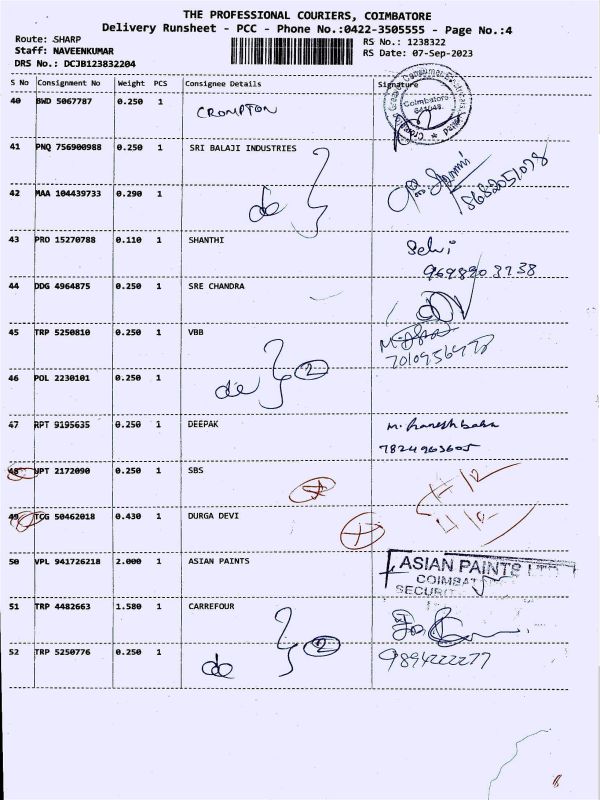 THE PROFESSIONAL COURIERS, COIMBATORE
Delivery Runsheet - PCC - Phone No.:0422-3505555 - Page No.:4
Route: SHARP
RS No.: 1238322
Staff: NAVEENKUMAR
RS Date: 07-Sep-2023
DRS No.: DCJB123832204
S No Consignment No Weight PCS Consignee Details Signature
40 BWD 5067787 0.250 1 CROMPTON
Coimbatore
41 PNQ 756900988 0.250 1 SRI BALAJI INDUSTRIES
8682051078
42 MAA 104439733 0.290 1 de
43 PRO 15270788 0.110 1 SHANTHI Selvi
44 DDG 4964875 0.250 1 SRE CHANDRA
45 TRP 5250810 0.250 1 VBB
46 POL 2230101 0.250 1 de 2
47 RPT 9195635 0.250 1 DEEPAK
7824963605
48 VPT 2172090 0.250 1 SBS
49 TCG 50462018 0.430 1 DURGA DEVI
50 VPL 941726218 2.000 1 ASIAN PAINTS ASIAN PAINTS LTD
COIMBAT
SECURIT
51 TRP 4482663 1.580 1 CARREFOUR
52 TRP 5250776 0.250 1 de 2 9894222277